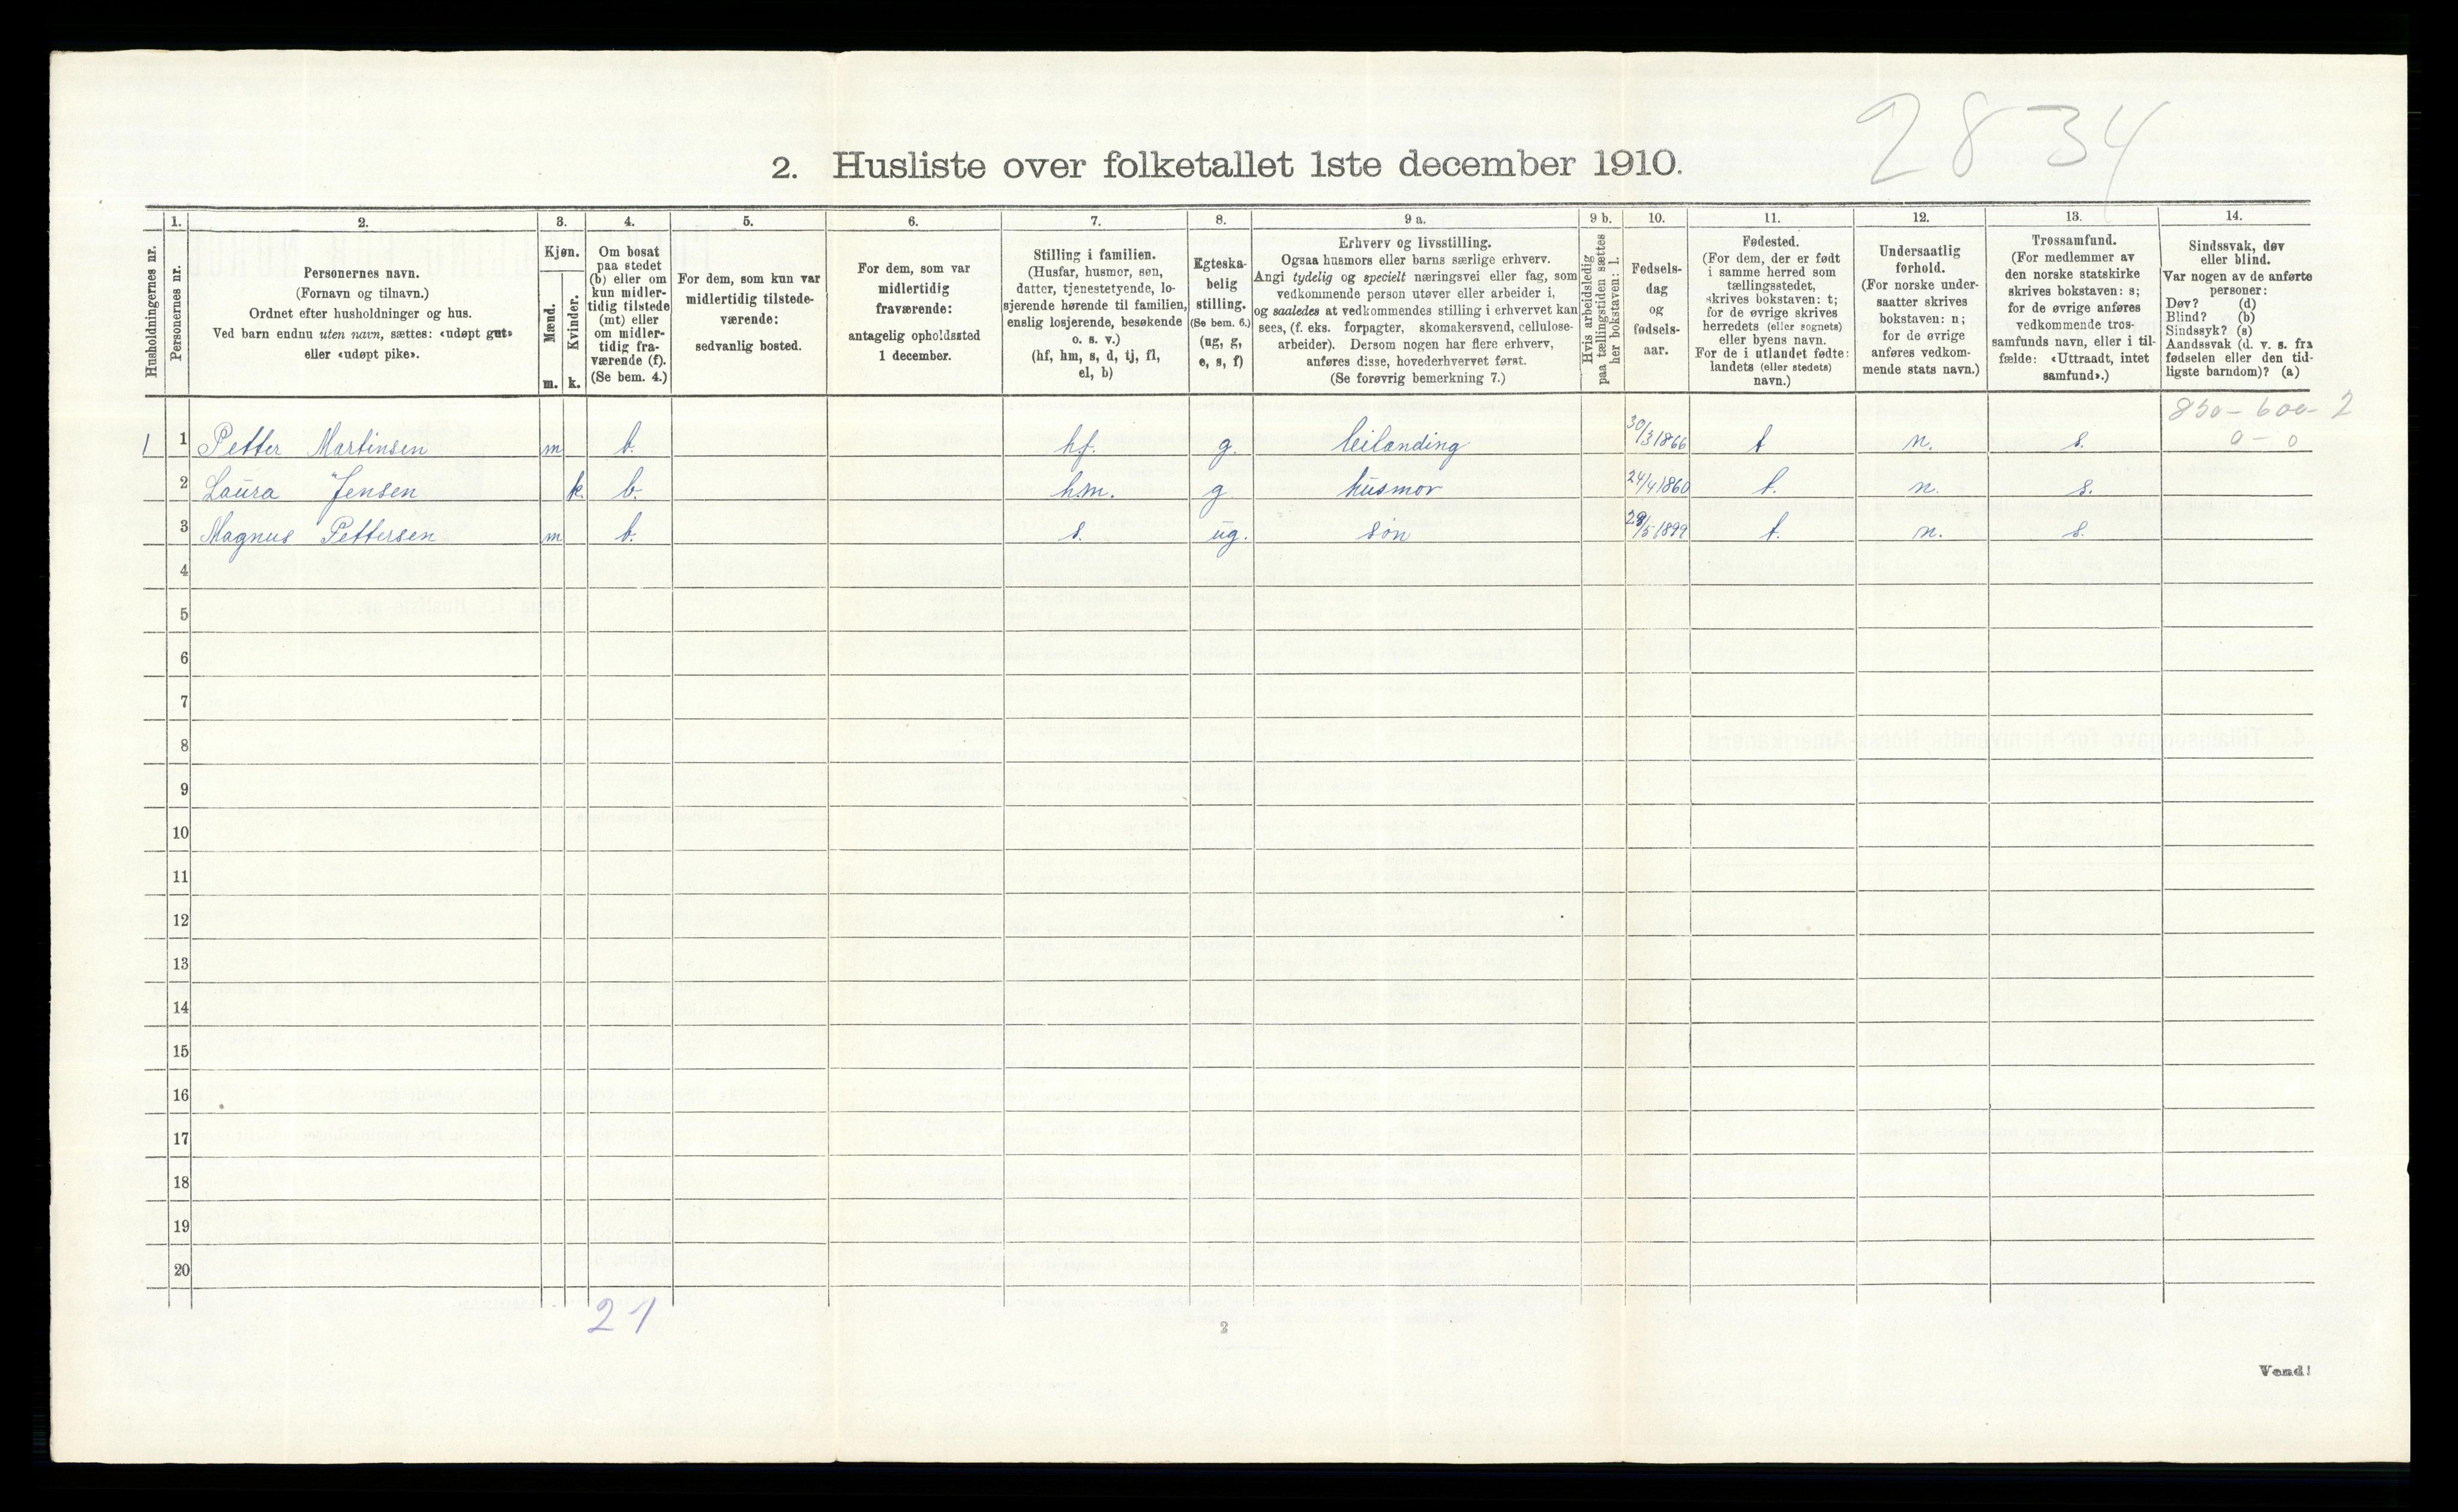 2834
2. Husliste over folketallet 1ste december 1910.
Husholdningernes nr.
1.
Personernes nr.
2.
Personernes navn.
(Fornavn og tilnavn.)
Ordnet efter husholdninger og hus.
Ved barn endnu uten navn, sættes: «udøpt gut»
eller «udøpt pike».
3.
Kjøn.
Mænd.
Kvinder.
m. k.
4.
Om bosat
paa stedet
(b) eller om
kun midler-
tidig tilstede
(mt) eller
om midler-
tidig fra-
værende (f).
(Se bem. 4.)
5.
For dem, som kun var
midlertidig tilstede-
værende:
sedvanlig bosted.
6.
For dem, som var
midlertidig
fraværende:
antagelig opholdssted
1 december.
7.
Stilling i familien.
(Husfar, husmor, søn,
datter, tjenestetyende, lo-
sjerende hørende til familien,
enslig losjerende, besøkende
o. s. v.)
(hf, hm, s, d, tj, fl,
el, b)
8.
Egteska-
belig
stilling.
(Se bem. 6.)
(ug, g,
e, s, f)
9 a.
Erhverv og livsstilling.
Ogsaa husmors eller barns særlige erhverv.
Angi tydelig og specielt næringsvei eller fag, som
vedkommende person utøver eller arbeider i,
og saaledes at vedkommendes stilling i erhvervet kan
sees, (f. eks. forpagter, skomakersvend, cellulose-
arbeider). Dersom nogen har flere erhverv,
anføres disse, hovederhvervet først.
(Se forøvrig bemerkning 7.)
9 b.
Hvis arbeidsledig
paa tællingstiden sættes
her bokstaven: l.
10.
Fødsels-
dag
og
fødsels-
aar.
11.
Fødested.
(For dem, der er født
i samme herred som
tællingsstedet,
skrives bokstaven: t;
for de øvrige skrives
herredets (eller sognets)
eller byens navn.
For de i utlandet fødte:
landets (eller stedets)
navn.)
12.
Undersaatlig
forhold.
(For norske under-
saatter skrives
bokstaven: n;
for de øvrige
anføres vedkom-
mende stats navn.)
13.
Trossamfund.
(For medlemmer av
den norske statskirke
skrives bokstaven: s;
for de øvrige anføres
vedkommende tros-
samfunds navn, eller i til-
fælde: «Uttraadt, intet
samfund».)
14.
Sindssvak, døv
eller blind.
Var nogen av de anførte
personer:
Døv? (d)
Blind? (b)
Sindssyk? (s)
Aandssvak (d. v. s. fra
fødselen eller den tid-
ligste barndom)? (a)
850-600-2
0-0
1 1 Petter Martinsen m b. hf. g. leilænding 30/3 1866 t n. s.
2 Laura Jensen k. b. hm. g husmor 24/4 1860 t. n. s.
3 Magnus Pettersen m b. s. ug. søn 28/5 1899 t. n. s.
4
5
6
7
8
9
10
11
12
13
14
15
16
17
18
19
20
21
2
Vend!